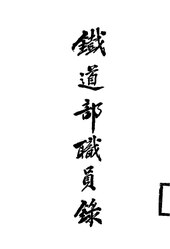 鐵道部職員錄